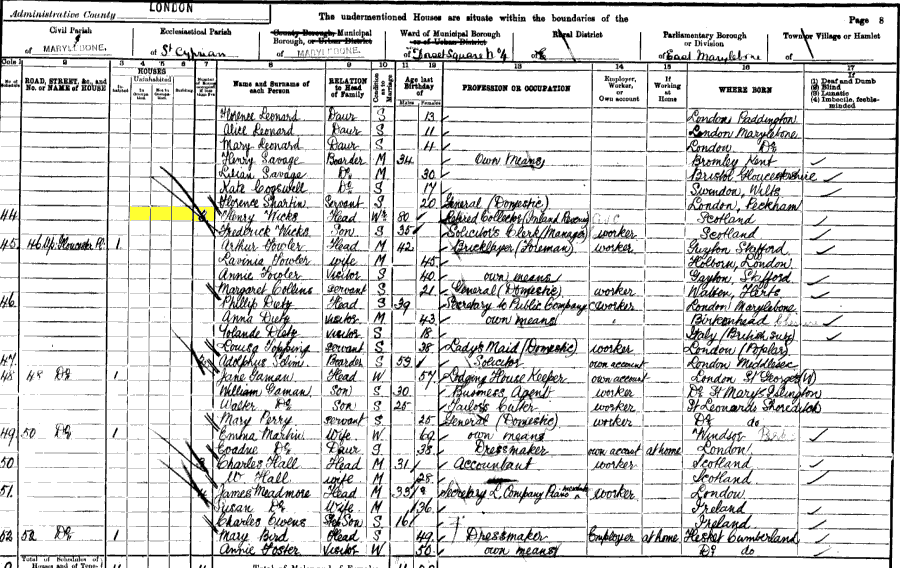 Administrative County LONDON
The undermentioned Houses are situate within the boundaries of the
Page 8
Civil Parish of MARYLEBONE.
Ecclesiastical Parish of St Cyprian
County Borough, Municipal Borough, or Urban District of MARYLEBONE.
Ward of Municipal Borough or of Urban District of Dorset Square No 4
Rural District of
Parliamentary Borough or Division of East Marylebone
Town or Village or Hamlet of
ROAD, STREET, &c., and No. or NAME of HOUSE
HOUSES
Name and Surname of each Person
RELATION to Head of Family
Condition as to Marriage
Age last Birthday of
Males Females
PROFESSION OR OCCUPATION
Employer, Worker, or Own account
If Working at Home
WHERE BORN
(1) Deaf and Dumb
(2) Blind
(3) Lunatic
(4) Imbecile, feeble-minded
Florence Leonard Daur S 13 London Paddington
Alice Leonard Daur S 11 London Marylebone
Mary Leonard Daur S 4 London Do
Henry Savage Boarder M 34 Own Means Bromley Kent
Lilian Savage Do M 30 Bristol Gloucestershire
Kate Cogswell Do S 17 Swindon, Wilts
Florence Servant S 20 General (Domestic) London, Peckham
44 Henry Wicks Head Wr 80 Retired Collector (Inland Revenue) Scotland
Frederick Wicks Son S 35 Solicitor's Clerk (Manager) worker Scotland
45 46 Up. Gloucester Pl. 1 Arthur Fowler Head M 42 Bricklayer (Foreman) worker Stafford
Lavinia Fowler wife M 45 Holborn, London
Annie Fowler Visitor S 40 own means Gayton, Stafford
Margaret Collins servant S 21 General (Domestic) worker Herts
46 Phillip Dietz Head S 39 Secretary to Public Company worker London Marylebone
Anna Dietz Visitor M 43 own means Birkenhead
Yolande Dietz Visitor S 18 Italy (British Subj)
Louisa Topping servant S 38 Lady's Maid (Domestic) worker London (Poplar)
47 Adolphus Boarder S 59 Solicitor own account London Middlesec
48 48 Do 1 Jane Gaman Head W 57 Lodging House Keeper own account London St Georges (W)
William Gaman Son S 30 Business Agent worker Do St Marys Islington
Walter Do Son S 25 Tailor's Cutter worker St Leonards Shoreditch
Mary Perry servant S 25 General (Domestic) worker Do do
49 50 Do 1 Emma Martin Wife W 69 own means Windsor
Do Daur S 38 Dressmaker own account at home London
50 Charles Hall Head M 31 Accountant worker Scotland
Hall wife M 28 Scotland
51 James Meadmore Head M 35 Secretary L. Company Piano worker London
Susan Do Wife M 36 Ireland
Charles Owens Step Son S 16 Ireland
52 52 Do 1 Mary Bird Head S 49 Dressmaker Employer at home Hesket Cumberland
Annie Foster Visitor W 50 own means Do do
Total of Schedules of Houses and of Tene-
Total of Males and of Females